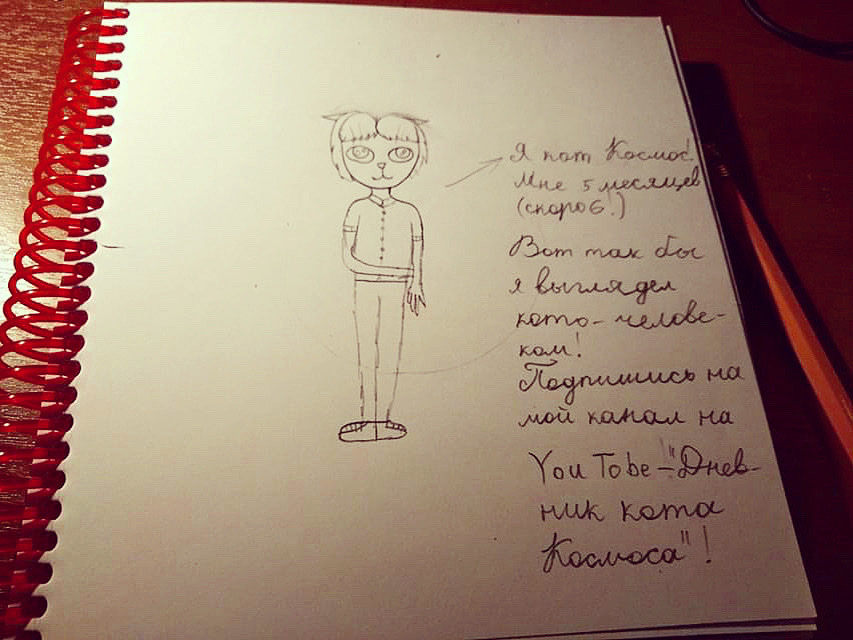 Я кот Космос!
Мне 5 месяцев
(скоро 6!)
Вот так бы
я выглядел
кото-челове-
ком!
Подпишись на
мой канал на
You Tobe-"Днев-
ник кота
Космоса"!